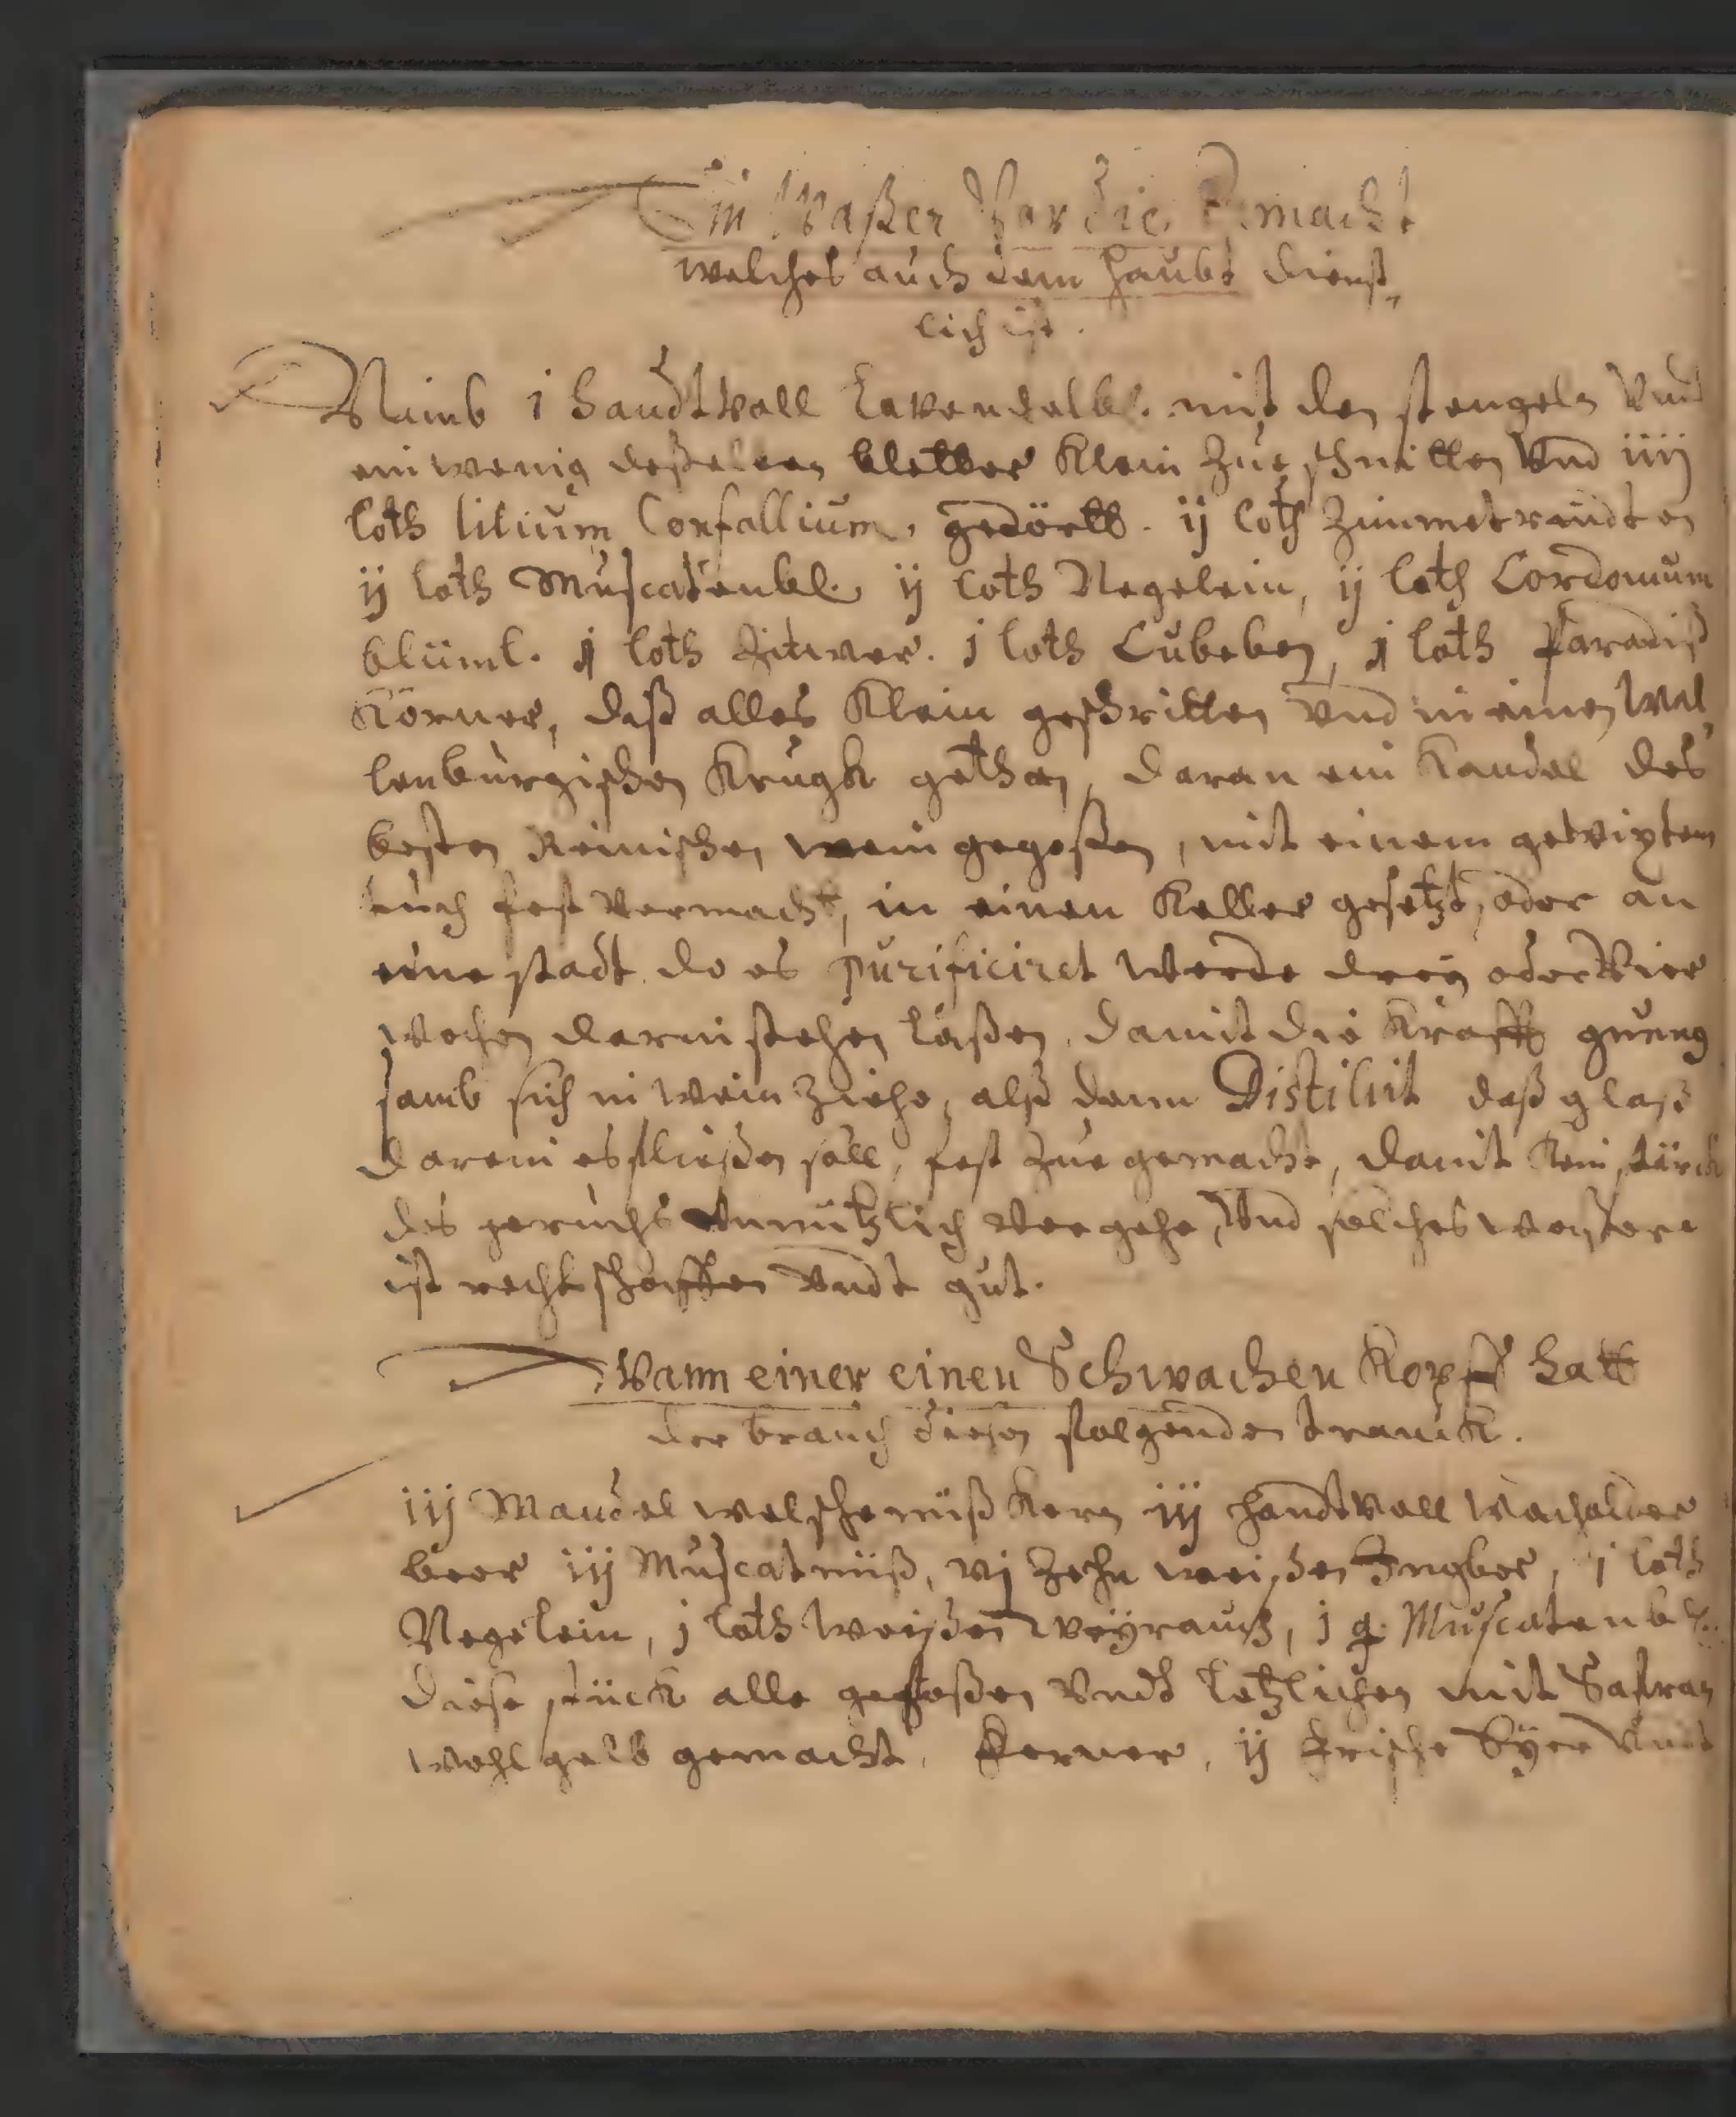 Ein Waßer Vor die Omacht
welches auch dem Haubt dienst,
lich ist.
Nimb i handtvoll Lavendelbl. mit den stengeln Vnd
ein wenig deßelben bletter klein zue schnitten Vnd iiij
loth lilium Confallium, gedörtt. ij loth Zimmetrindten
ij loth Muscatenbl. ij loth Negelein, ij loth Cordomum
blüml. j loth Zitwer. j loth Cubeben, j loth paradiß
Körner, daß alles klein geschnitten vnd in einen Wal,
lenburgischen Krugk gethan, daran ein Kandel des
besten Reinischen wein gegoßen, mit einem gewixtem
tuch fest vermacht, in einen Keller gesetzt, oder an
eine stadt do es purificiret werde drey oder Vier
wochen darin stehen laßen, damit die Krafft gnung
samb sich in wein ziehe, alß dann Distilirt daß glaß
darein es fließen soll, fest zue gemacht, damit kein stärck
des geruchs Vnnützlich vergehe, Vnd solches waßere
ist rechtschaffen Vndt gut.
Wann einer einen Schwachen Kopff hatt
der brauch diesen folgenden tranck.
iij Mandel welsche nüß Kern iij handtvoll Wacholder
beer iij Muscatnüß, vj Zehn weißen Ingber, j loth
Negelein, j loth weißen weyrauch, j q. Muscatenbl.
diese stück alle gestoßen Vndt letzlichen mit Safran
wohl gelb gemacht. Ferner, ij frische Eyer Vndt